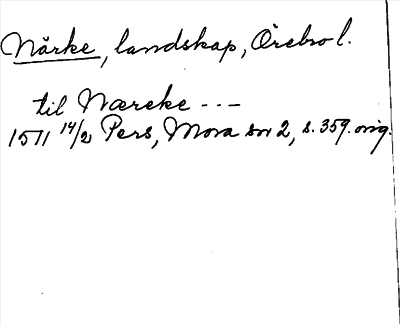 Närke, landskap, Örebro l.
til Næreke ---
1511 14/2 Pers, Mora sn 2, s. 359. orig.